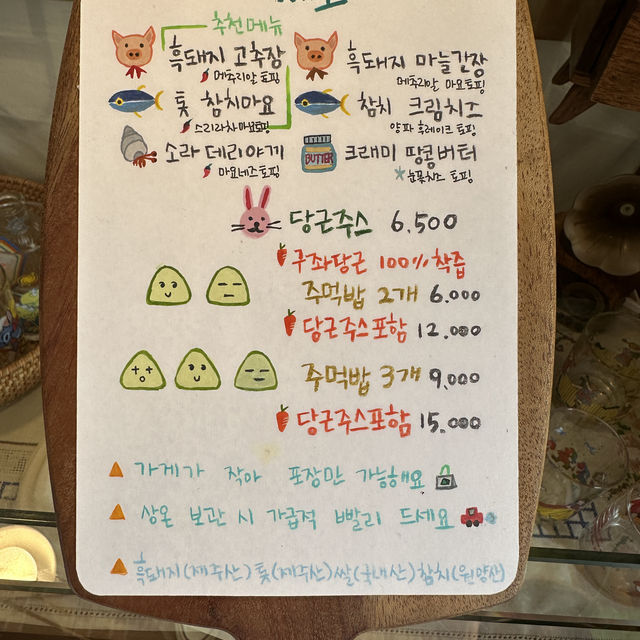 추천메뉴
흑돼지 고추장 흑돼지 마늘간장
메추리알 토핑 메추리알 마요토핑
톳 참치마요 참치 크림치즈
스리라차마요토핑 양파 후레이크 토핑
소라 데리야끼 BUTTER 크래미 땅콩버터
마요네즈 토핑 눈꽃치즈 토핑
당근주스 6,500
구좌당근 100% 착즙
주먹밥 2개 6,000
당근주스포함 12,000
주먹밥 3개 9,000
당근주스포함 15,000
가게가 작아 포장만 가능해요
상온 보관 시 가급적 빨리 드세요
흑돼지(제주산) 톳(제주산) 쌀(국내산) 참치(원양산)